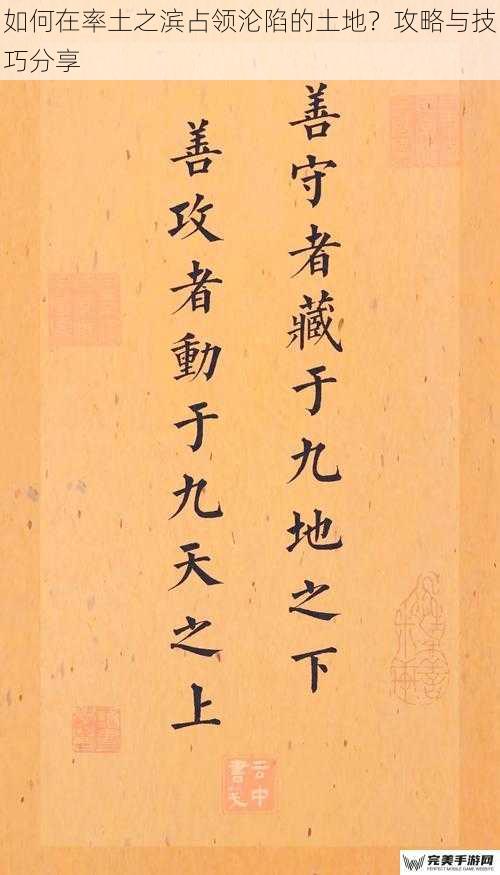 如何在率土之滨占领沦陷的土地？攻略与技
巧分享
善守者藏于九地之下
善攻者動于九天之上
云中
書笺
完美手游网
PERFECT MOBILE GAME WEBSITE